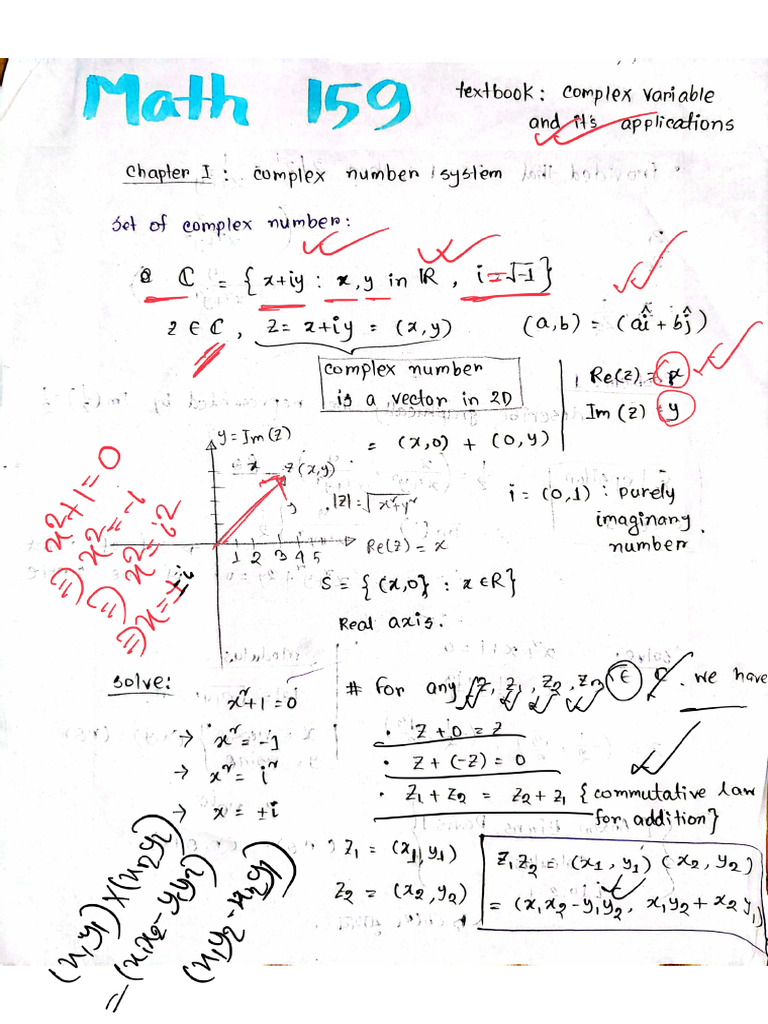 Math 159
textbook: complex variable
and its applications
Chapter I: complex number system
set of complex number:
ℂ = {x+iy : x,y in ℝ, i=√-1}
z ∈ ℂ, z = x+iy = (x,y)
(a,b) = (aî + bĵ)
complex number
is a vector in 2D
Re(z) = x
Im(z) = y
= (x,0) + (0,y)
y = Im(z)
x
z(x,y)
y
|z| = √x²+y²
i = (0,1) : purely
imaginary
number.
1 2 3 4 5
Re(z) = x
S = {(x,0} : x ∈ R}
Real axis.
x²+1=0
⇒ x²=-1
⇒ x²=i²
⇒ x=±i
solve:
x²+1=0
→ x² = -1
→ x² = i²
→ x = ±i
# for any z, z₁, z₂, z₃ ∈ ℂ. we have
· z+0 = z
· z+(-z) = 0
· z₁+z₂ = z₂+z₁ {commutative law
for addition}
z₁ = (x₁,y₁)
z₂ = (x₂,y₂)
z₁z₂ = (x₁,y₁)(x₂,y₂)
= (x₁x₂-y₁y₂, x₁y₂+x₂y₁)
(x₁y₁)×(x₂y₂)
=(x₁x₂-y₁y₂)
(x₁y₂-x₂y₁)